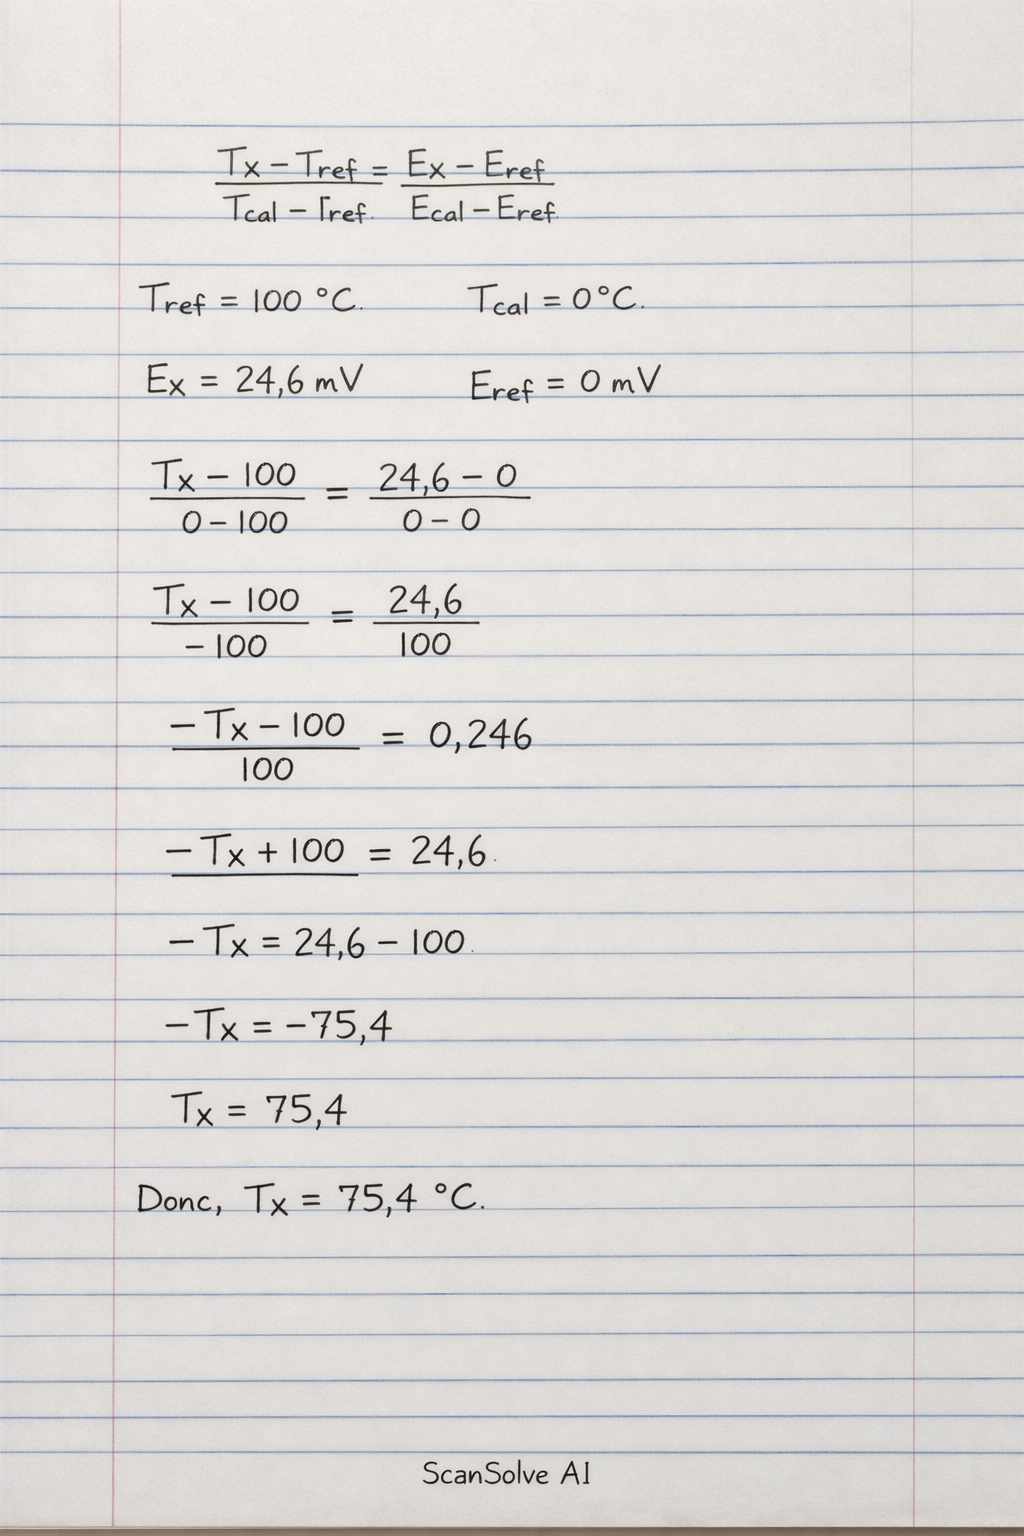 Tx − Tref = Ex − Eref
Tcal − Tref. Ecal − Eref.
Tref = 100 °C. Tcal = 0°C.
Ex = 24,6 mV Eref = 0 mV
Tx − 100 = 24,6 − 0
0 − 100 0 − 0
Tx − 100 = 24,6
− 100 100
− Tx − 100 = 0,246
100
− Tx + 100 = 24,6.
− Tx = 24,6 − 100.
−Tx = −75,4
Tx = 75,4
Donc, Tx = 75,4 °C.
ScanSolve AI